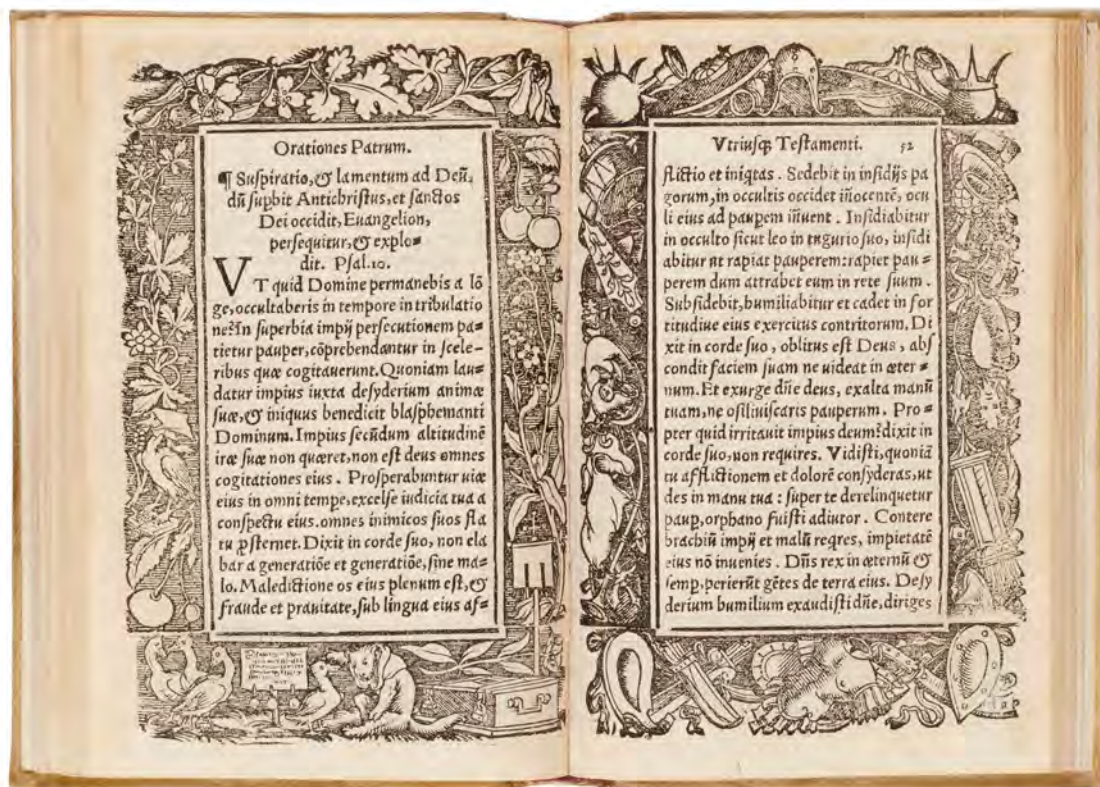 Orationes Patrum.
¶ Suspiratio, & lamentum ad Deũ,
dũ supbit Antichristus, et sanctos
Dei occidit, Euangelion,
persequitur, & explo=
dit. Psal. 10.
VT quid Domine permanebis a lõ
ge, occultaberis in tempore in tribulatio
ne? In superbia impij persecutionem pa=
tietur pauper, cõprehendantur in scele-
ribus quæ cogitauerunt. Quoniam lau=
datur impius iuxta desyderium animæ
suæ, & iniquus benedicit blasphemanti
Dominum. Impius secũdum altitudinẽ
iræ suæ non quæret, non est deus omnes
cogitationes eius. Prosperabuntur uiæ
eius in omni tempe, excelse iudicia tua a
conspectu eius. omnes inimicos suos fla
tu ꝓsternet. Dixit in corde suo, non ela
bar a generatiõe et generatiõe, sine ma=
lo. Maledictione os eius plenum est, &
fraude et prauitate, sub lingua eius af=
Vtriusq; Testamenti. 52
flictio et iniqtas. Sedebit in insidijs pa
gorum, in occultis occidet iñocentẽ, ocu
li eius ad paupem iñuent. Insidiabitur
in occulto sicut leo in tugurio suo, insidi
abitur ut rapiat pauperem: rapiet pau=
perem dum attrahet eum in rete suum.
Subsidebit, humiliabitur et cadet in for
titudiue eius exercitus contritorum. Di
xit in corde suo, oblitus est Deus, abs
condit faciem suam ne uideat in æter=
num. Et exurge dñe deus, exalta manũ
tuam, ne osiliuiscaris pauperum. Pro=
pter quid irritauit impius deum? dixit in
corde suo, non requires. Vidisti, quoniã
tu afflictionem et dolorẽ consyderas, ut
des in manu tua: super te derelinquetur
paup, orphano fuisti adiutor. Contere
brachiũ impij et malũ reqres, impietatẽ
eius nõ inuenies. Dñs rex in æternũ &
semp. perierũt gẽtes de terra eius. Desy
derium humilium exaudisti dñe, diriges